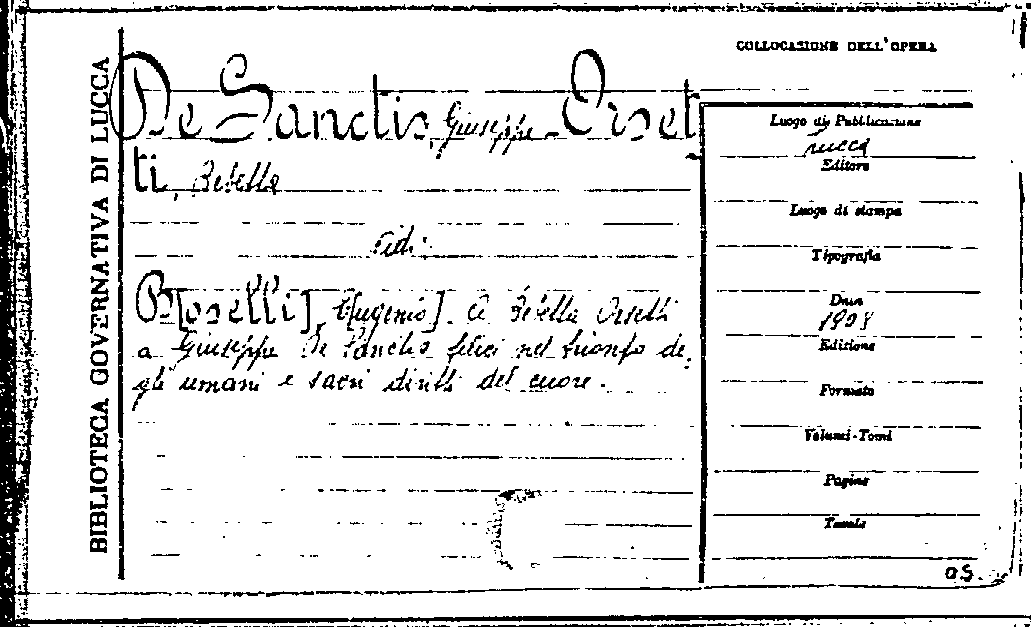 BIBLIOTECA GOVERNATIVA DI LUCCA
COLLOCAZIONE DELL'OPERA
De Sanctis, Giuseppe - Orset
ti, Bebella
Vedi:
B[oselli], E[ugenio]. A Bebella Orsetti
a Giuseppe De Sanctis felici nel trionfo de
gli umani e sacri diritti del cuore.
Luogo di Pubblicazione
Lucca
Editore
Luogo di stampa
Tipografia
Data
Edizione
Formato
Volumi-Tomi
Pagine
Tavole